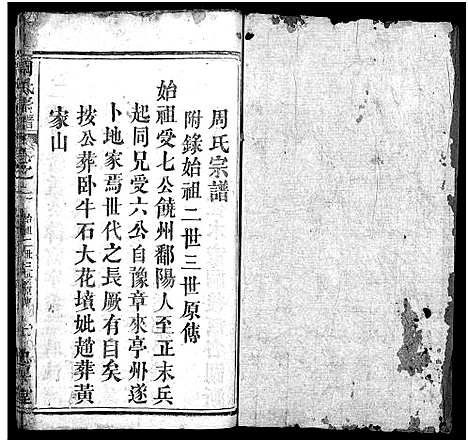 周氏宗譜
附錄始祖二世三世原傳
始祖受七公饒州鄱陽人至正末兵
起同兄受六公自豫章來亭州遂
卜地家焉世代之長厥有自矣
按公葬卧牛石大花墳妣趙葬黃
家山